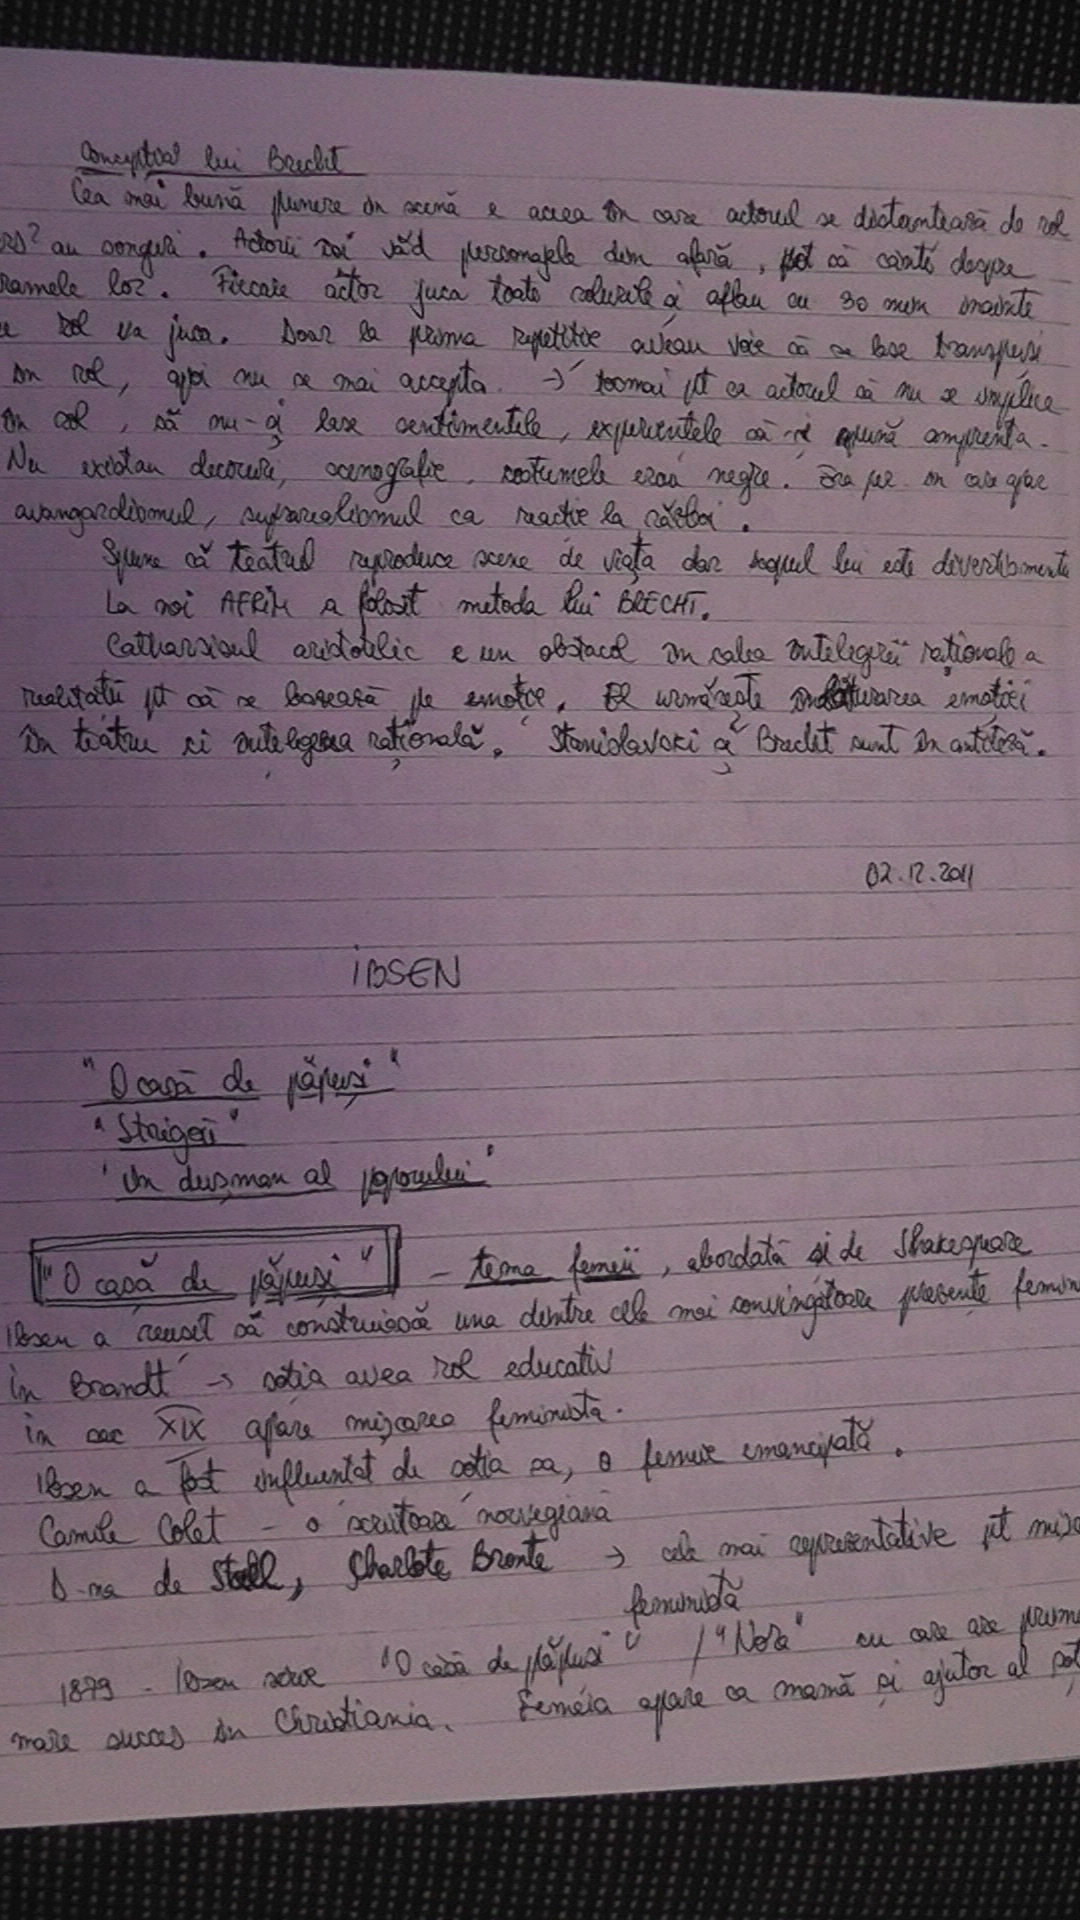 Conceptual lui Brecht
Cea mai bună punere în scenă e aceea în care actorul se distantează de rol
au songuri. Actorii văd personajele din afară, pot să cânte despre
dramele lor. Fiecare actor juca toate rolurile și aflau cu 30 min înainte
rol va juca. Doar la prima repetitie aveau voie să se lase transpusi
în rol, apoi nu se mai accepta. → tocmai pt ca actorul să nu se implice
în rol, să nu-și lase sentimentele, experientele să-și pună amprenta.
Nu existau decoruri, scenografie, costumele erau negre. Era per. în care apar
avangardismul, suprarealismul ca reactie la război.
Spune că teatrul reproduce scene de viața dar scopul lui este divertisment
La noi AFRIM a folosit metoda lui BRECHT.
Catharsisul aristotelic e un obstacol în calea întelegerii raționale a
realitatii pt că se bazează pe emotie. El urmărește înlăturarea emotiei
în teatru si întelegerea rațională. Stanislavski și Brecht sunt în antiteză.
02.12.2011
IBSEN
"O casă de păpuși"
"Strigoii"
"Un dușman al poporului"
"O casă de păpuși" - tema femeii, abordată și de Shakespeare
Ibsen a reusit să construiască una dintre cele mai convingătoare prezente feminin
în Brandt → sotia avea rol educativ
în sec XIX apare mișcarea feministă.
Ibsen a fost influentat de sotia sa, o femeie emancipată.
Camile Colet - o scriitoare norvegiană
D-na de Stael, Charlote Bronte → cele mai reprezentative pt mișc
feministă
1879 - Ibsen scrie "O casă de păpusi" / "Nora" cu care are prim
mare succes în Christiania. Femeia apare ca mamă și ajutor al soț